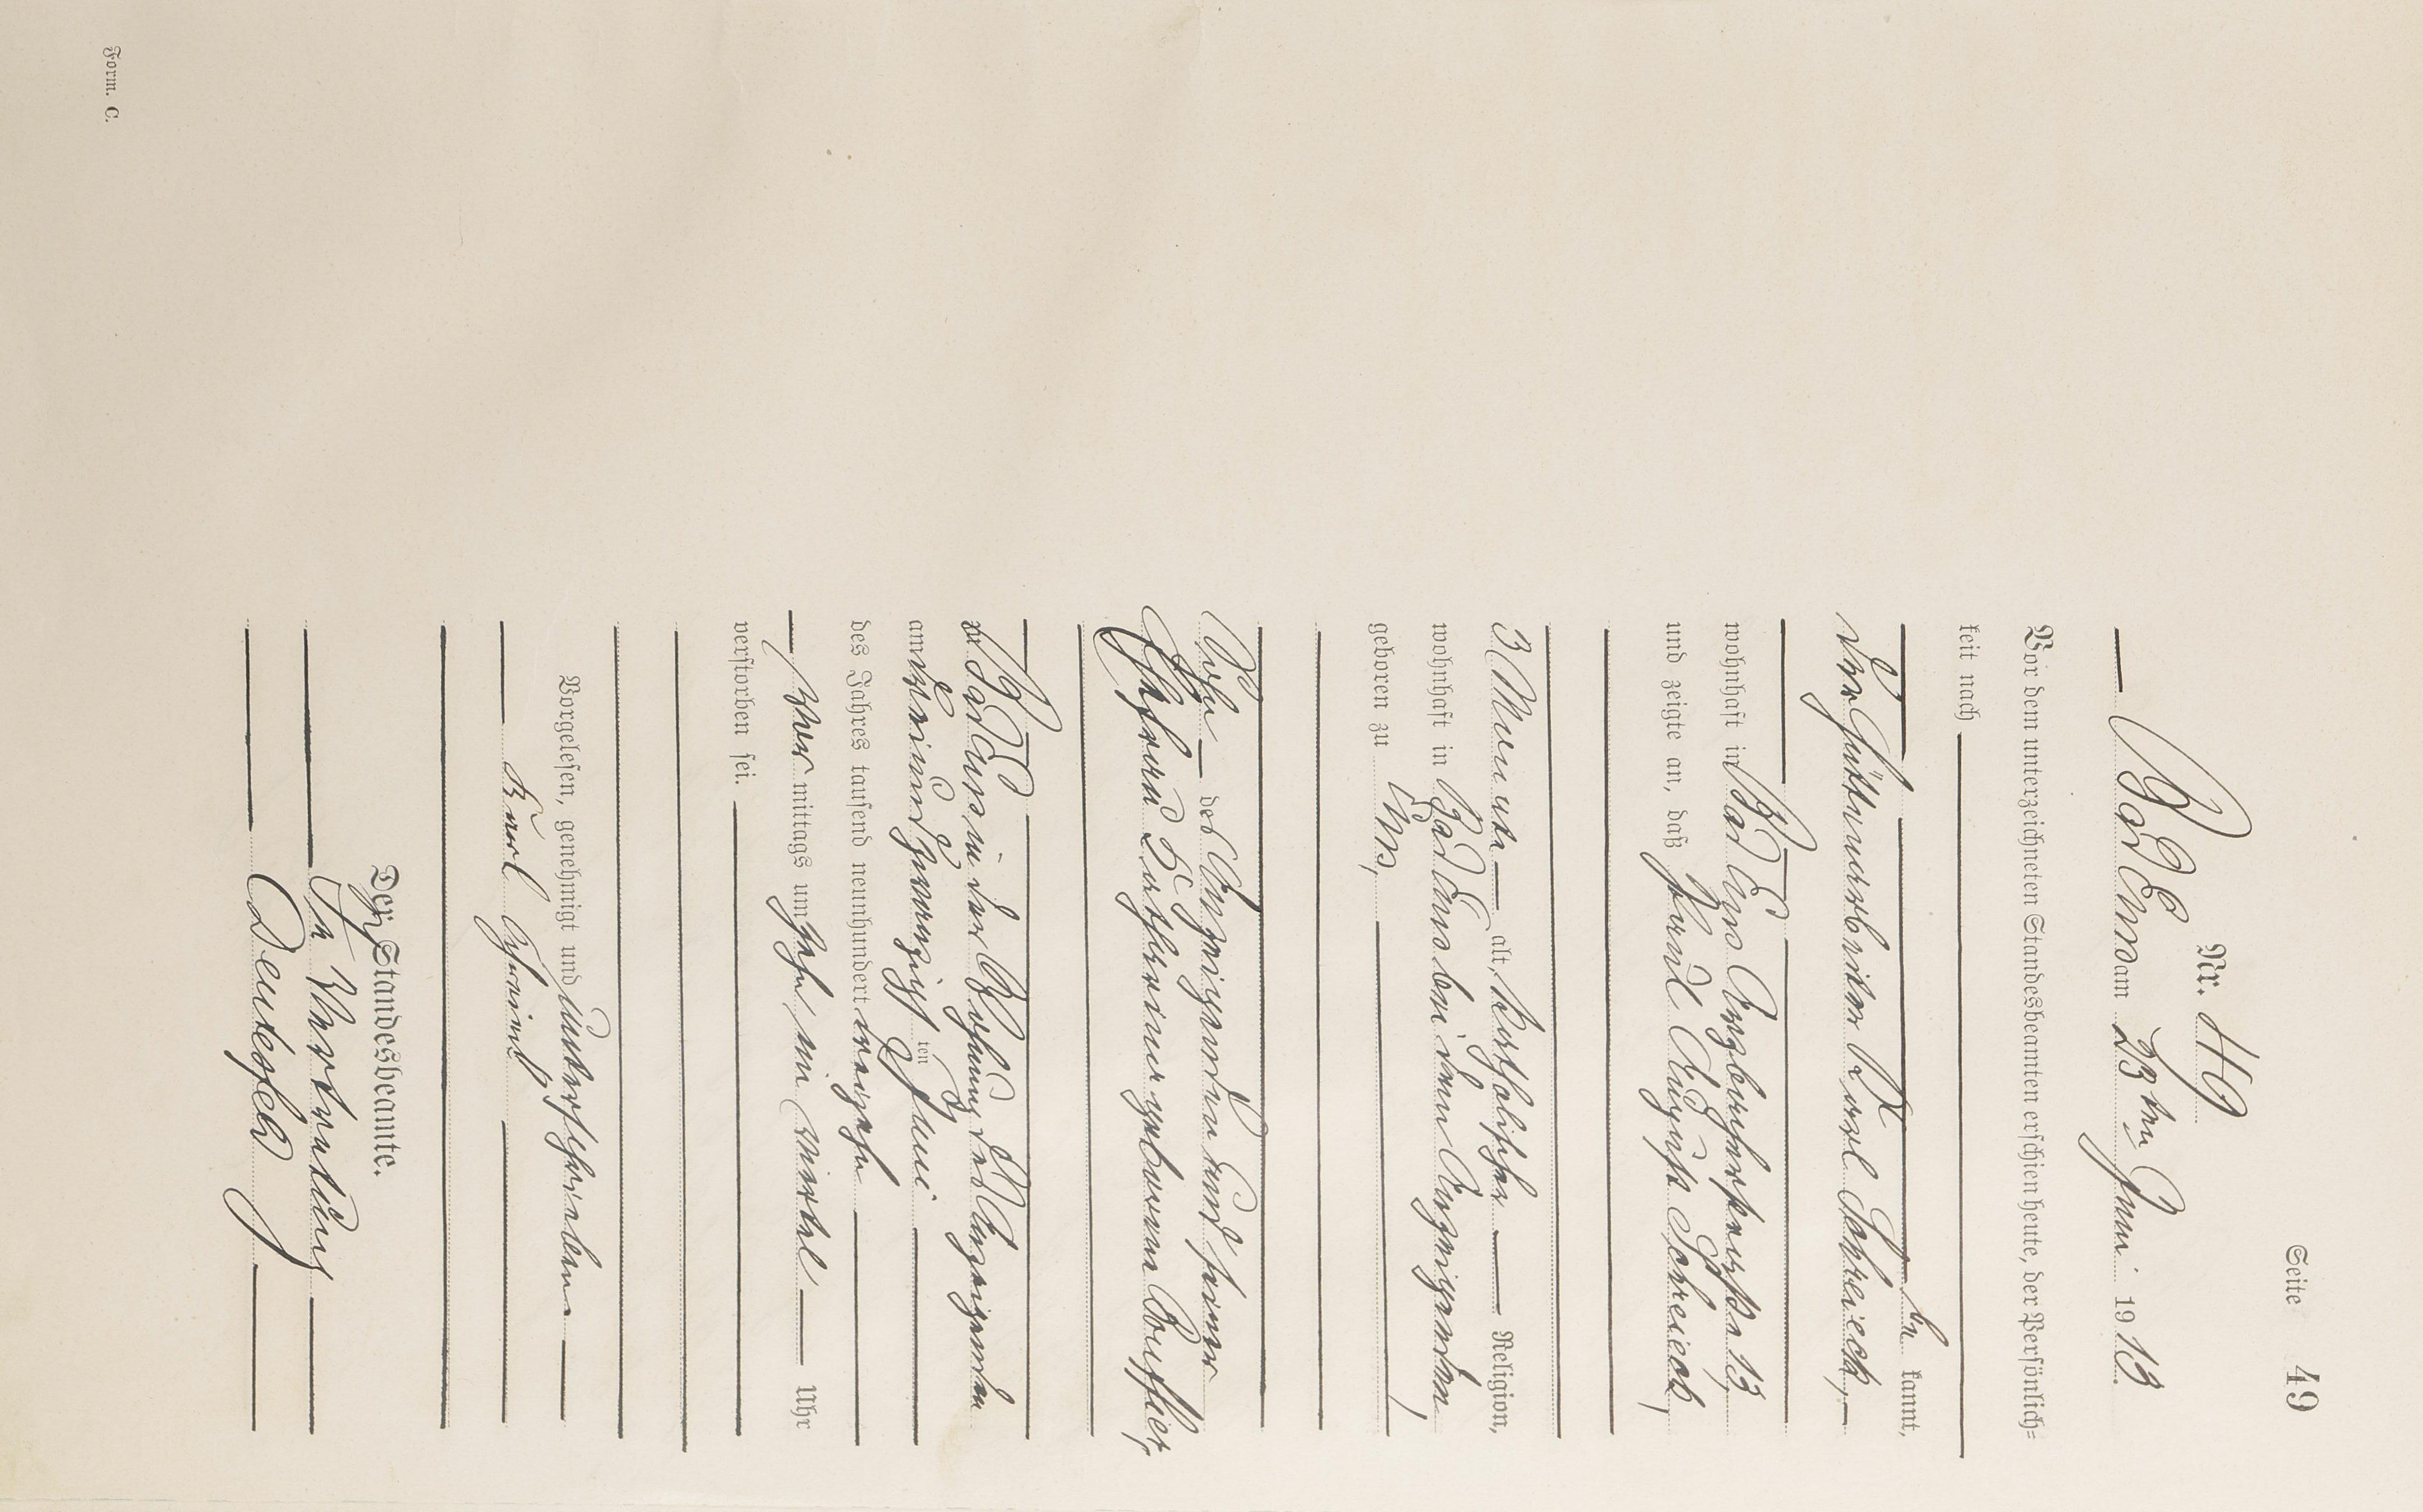 Seite 49
Nr. 49
Bad Ems am 23ten Juni 1913.
Vor dem unterzeichneten Standesbeamten erschien heute, der Persönlich-
keit nach
be kannt,
der Hüttenarbeiter Karl Schreieck,
wohnhaft in Bad Ems Arzbacherstraße 13
und zeigte an, daß Paul August Schreieck,
3 Monate alt, katholischer Religion,
wohnhaft in Bad Ems bei dem Anzeigenden,
geboren zu Ems,
Sohn des Anzeigenden und seiner
Ehefrau Katharina geborenen
zu Bad Ems, in der Wohnung des Anzeigenden
am dreiundzwanzigsten Juni
des Jahres tausend neunhundert dreizehn
Vor mittags um zehn ein viertel Uhr
verstorben sei.
Vorgelesen, genehmigt und unterschrieben
Karl
Der Standesbeamte.
In Vertretung
Form. C.